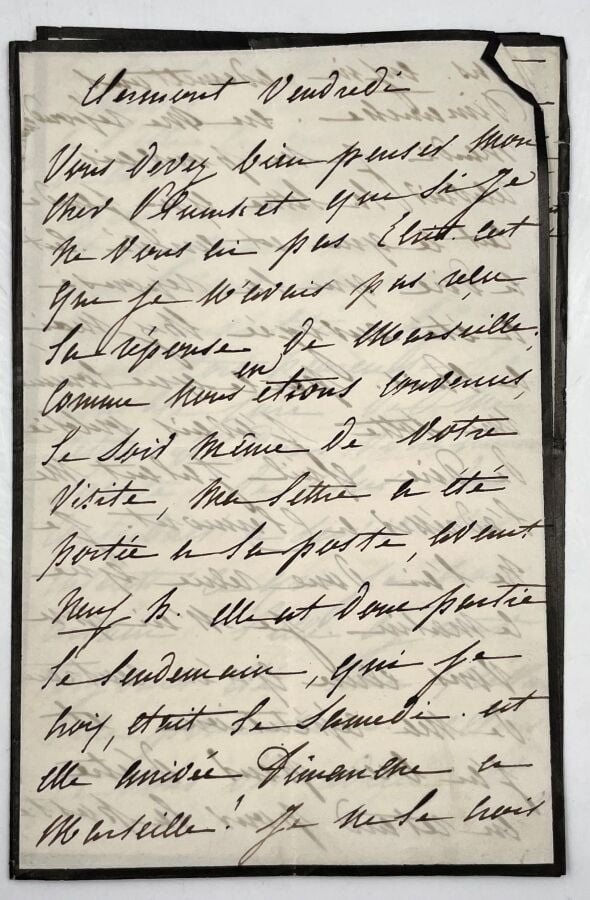 Clermont Vendredi
Vous devez bien penser mon
cher Plunket que si je
ne vous ai pas écrit c'est
que je n'avais pas reçu
la réponse de Marseille,
comme nous en étions convenus,
le soir même de votre
visite, ma lettre a été
portée a la poste, avant
neuf h. elle est donc partie
le lendemain, qui je
crois, était le Samedi. est
elle arrivée Dimanche a
Marseille? je ne le crois